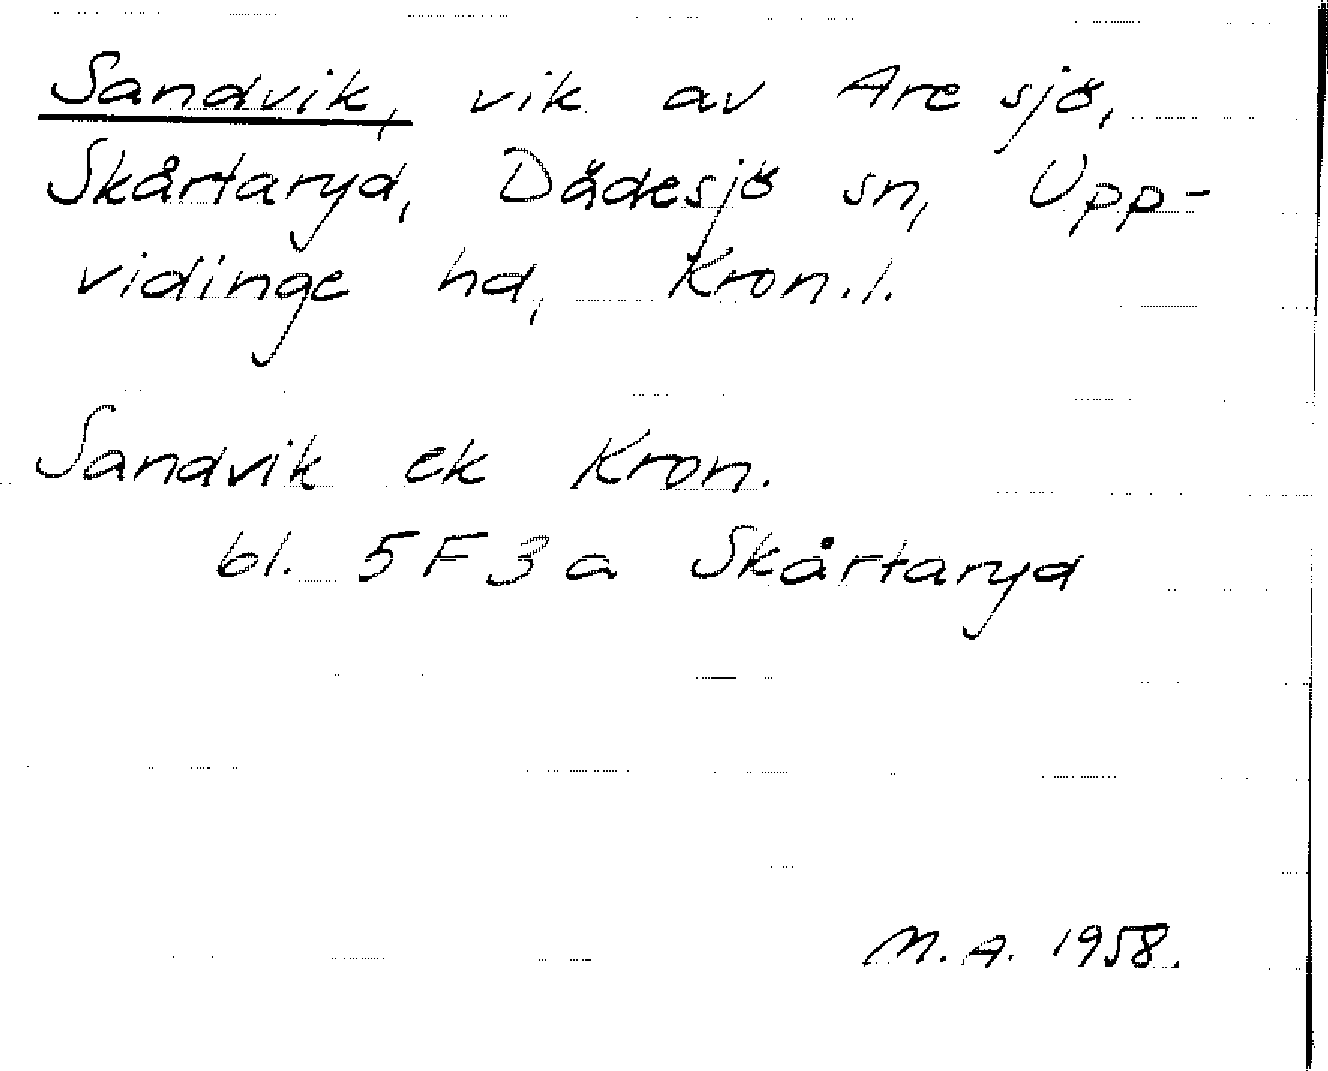 Sandvik, vik av Are sjö,
Skårtaryd, Dädesjö sn, Upp-
vidinge hd, Kron.l.
Sandvik ek Kron.
bl. 5F3a Skårtaryd
M.A. 1958.